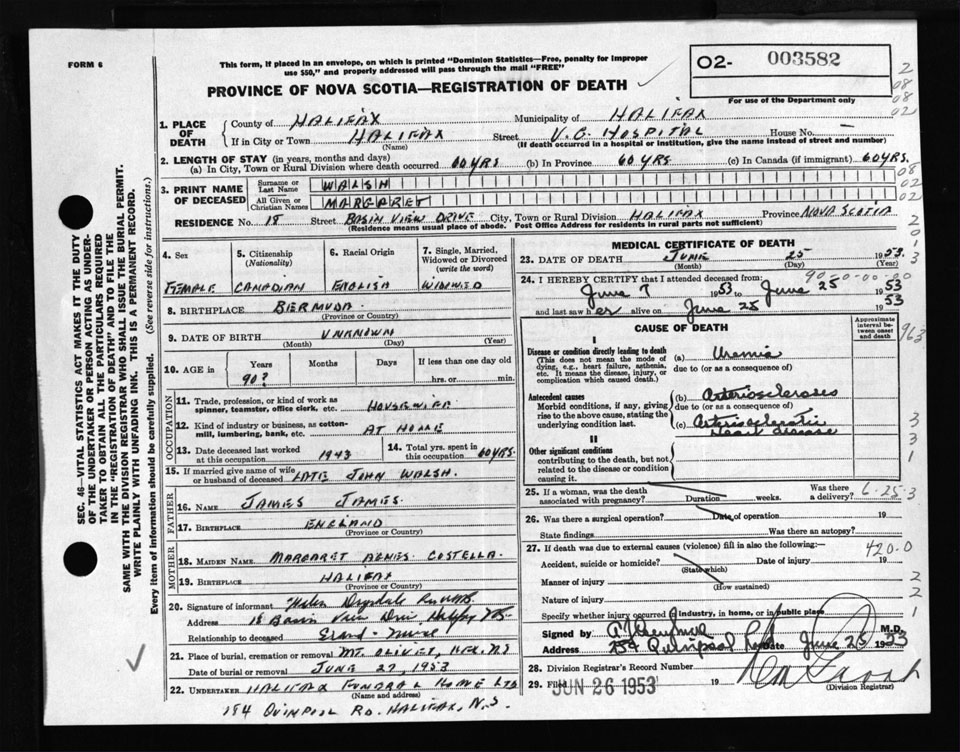 FORM 6
This form, if placed in an envelope, on which is printed "Dominion Statistics—Free, penalty for improper
use $50," and properly addressed will pass through the mail "FREE"
O2- 003582
For use of the Department only
PROVINCE OF NOVA SCOTIA—REGISTRATION OF DEATH
2
08
08
02
1. PLACE OF DEATH
County of HALIFAX Municipality of HALIFAX
If in City or Town HALIFAX Street V.G. HOSPITAL House No. —
(Name) (If death occurred in a hospital or institution, give the name instead of street and number)
2. LENGTH OF STAY (in years, months and days)
(a) In City, Town or Rural Division where death occurred 60 YRS (b) In Province 60 YRS. (c) In Canada (if immigrant) 60 YRS.
3. PRINT NAME OF DECEASED
Surname or Last Name WALSH
All Given or Christian Names MARGARET
08
02
02
RESIDENCE No. 18 Street BASIN VIEW DRIVE City, Town or Rural Division HALIFAX Province NOVA SCOTIA
(Residence means usual place of abode. Post Office Address for residents in rural parts not sufficient)
4. Sex 5. Citizenship (Nationality) 6. Racial Origin 7. Single, Married, Widowed or Divorced (write the word)
FEMALE CANADIAN ENGLISH WIDOWED
8. BIRTHPLACE BERMUDA
(Province or Country)
9. DATE OF BIRTH UNKNOWN
(Month) (Day) (Year)
10. AGE in Years Months Days If less than one day old
90? hrs. or min.
OCCUPATION
11. Trade, profession, or kind of work as
spinner, teamster, office clerk, etc. HOUSEWIFE
12. Kind of industry or business, as cotton-
mill, lumbering, bank, etc. AT HOME
13. Date deceased last worked at this occupation 1943 14. Total yrs. spent in this occupation 60 YRS.
15. If married give name of wife
or husband of deceased LATE JOHN WALSH.
FATHER
16. NAME JAMES JAMES.
17. BIRTHPLACE ENGLAND
(Province or Country)
MOTHER
18. MAIDEN NAME MARGARET AGNES COSTELLA.
19. BIRTHPLACE HALIFAX
(Province or Country)
20. Signature of informant Helen Drysdale
Address 18 Basin View
Relationship to deceased
21. Place of burial, cremation or removal MT. OLIVET, HFX. NS
Date of burial or removal JUNE 27, 1953
22. UNDERTAKER HALIFAX FUNERAL HOME LTD
(Name and address)
184 QUINPOOL RD. HALIFAX, N.S.
MEDICAL CERTIFICATE OF DEATH
23. DATE OF DEATH JUNE 25 1953.
(Month) (Day) (Year)
24. I HEREBY CERTIFY that I attended deceased from:
90-0-00-00
June 7 1953 to June 25 1953
and last saw her alive on June 25 1953
CAUSE OF DEATH
Approximate interval between onset and death
I
Disease or condition directly leading to death
(This does not mean the mode of
dying, e.g., heart failure, asthenia,
etc. It means the disease, injury, or
complication which caused death.)
(a) Uremia
due to (or as a consequence of)
Antecedent causes
Morbid conditions, if any, giving
rise to the above cause, stating the
underlying condition last.
(b) Arteriosclerosis
due to (or as a consequence of)
(c) Arteriosclerotic
Heart disease
II
Other significant conditions
contributing to the death, but not
related to the disease or condition
causing it.
25. If a woman, was the death
associated with pregnancy? Duration weeks. Was there
a delivery? 6-25 3
26. Was there a surgical operation? Date of operation 19
State findings Was there an autopsy?
27. If death was due to external causes (violence) fill in also the following:—
420.0
Accident, suicide or homicide? Date of injury 19
(State which)
Manner of injury
(How sustained)
Nature of injury
Specify whether injury occurred in industry, in home, or in public place
Signed by M.D.
Address 254 Quinpool Date June 25 1953
28. Division Registrar's Record Number
29. Filed JUN 26 1953 19
(Division Registrar)
SEC. 46—VITAL STATISTICS ACT MAKES IT THE DUTY
OF THE UNDERTAKER OR PERSON ACTING AS UNDER-
TAKER TO OBTAIN ALL THE PARTICULARS REQUIRED
IN THE "REGISTRATION OF DEATH" AND TO FILE THE
SAME WITH THE DIVISION REGISTRAR WHO SHALL ISSUE THE BURIAL PERMIT.
WRITE PLAINLY WITH UNFADING INK. THIS IS A PERMANENT RECORD.
Every item of information should be carefully supplied. (See reverse side for instructions.)
2
0
1
3
963
3
3
1
2
2
1